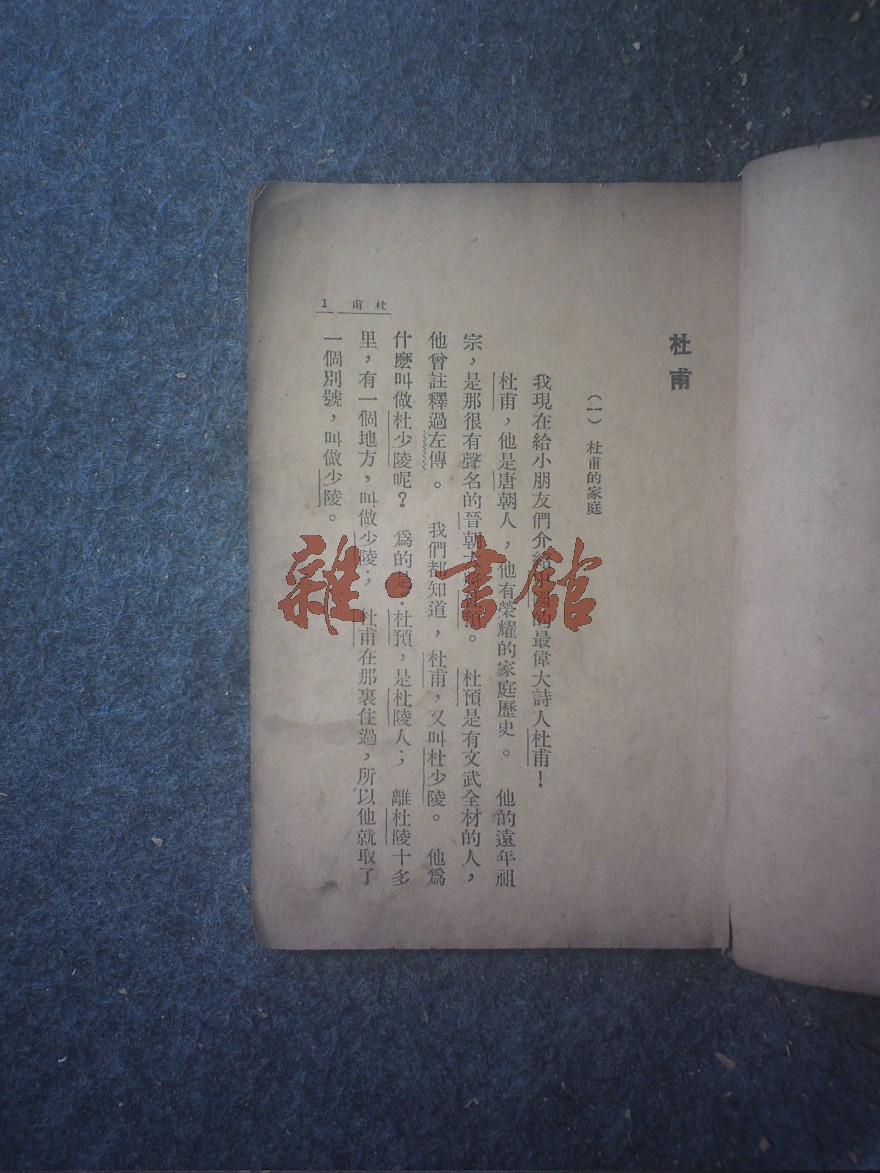 杜甫
(一) 杜甫的家庭
我現在給小朋友們介紹的最偉大詩人杜甫!
杜甫,他是唐朝人,他有榮耀的家庭歷史。 他的遠年祖
宗,是那很有聲名的晉朝。 杜預是有文武全材的人,
他曾註釋過左傳。 我們都知道,杜甫,又叫杜少陵。 他爲
什麽叫做杜少陵呢? 爲的是:杜預,是杜陵人; 離杜陵十多
里,有一個地方,叫做少陵; 杜甫在那裏住過,所以他就取了
一個別號,叫做少陵。
杜甫 1
雜·書館